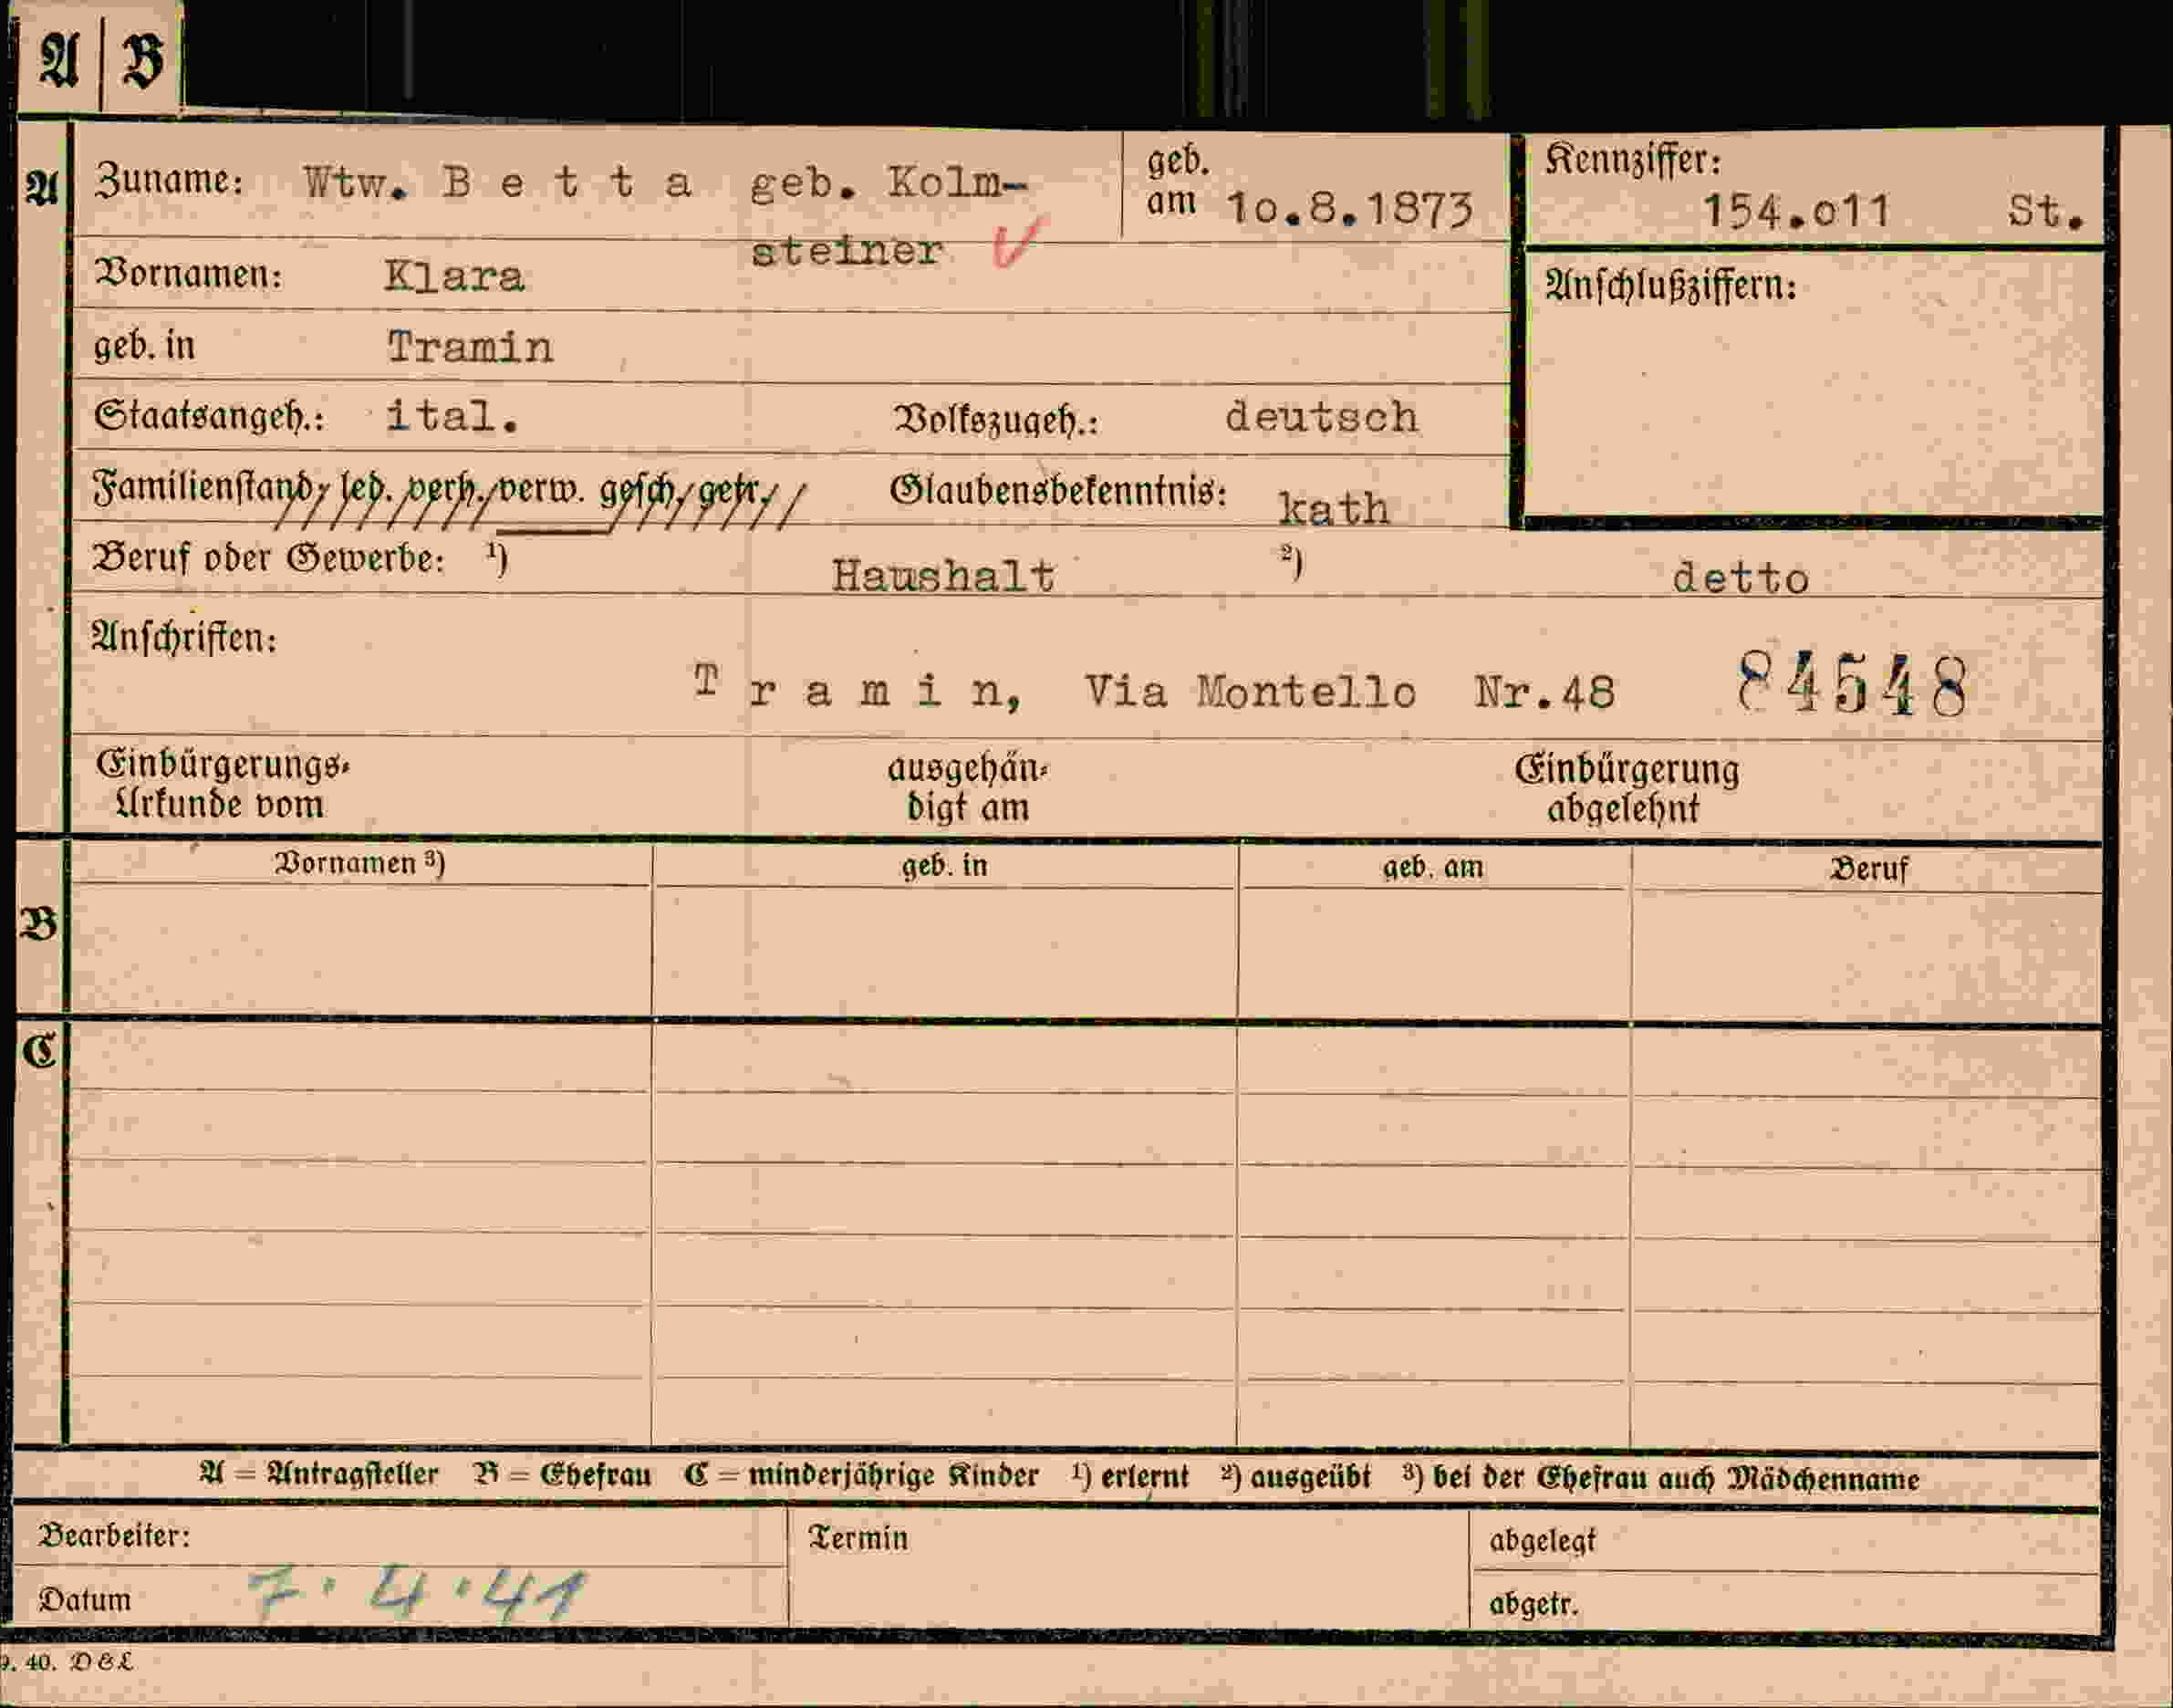 A B
A Zuname: Wtw. B e t t a geb. Kolm- geb. am 1o.8.1873 Kennziffer: 154.o11 St.
steiner
Vornamen: Klara Anschlußziffern:
geb. in Tramin
Staatsangeh.: ital. Volkszugeh.: deutsch
Familienstand, led. verh. verw. gesch. getr. Glaubensbekenntnis: kath
Beruf oder Gewerbe: ¹) Haushalt ²) detto
Anschriften:
T r a m i n, Via Montello Nr.48 84548
Einbürgerungs- ausgehän- Einbürgerung
Urkunde vom digt am abgelehnt
Vornamen ³) geb. in geb. am Beruf
B
C
A = Antragsteller B = Ehefrau C = minderjährige Kinder ¹) erlernt ²) ausgeübt ³) bei der Ehefrau auch Mädchenname
Bearbeiter: Termin abgelegt
Datum 7.4.41 abgetr.
9. 40. D & L